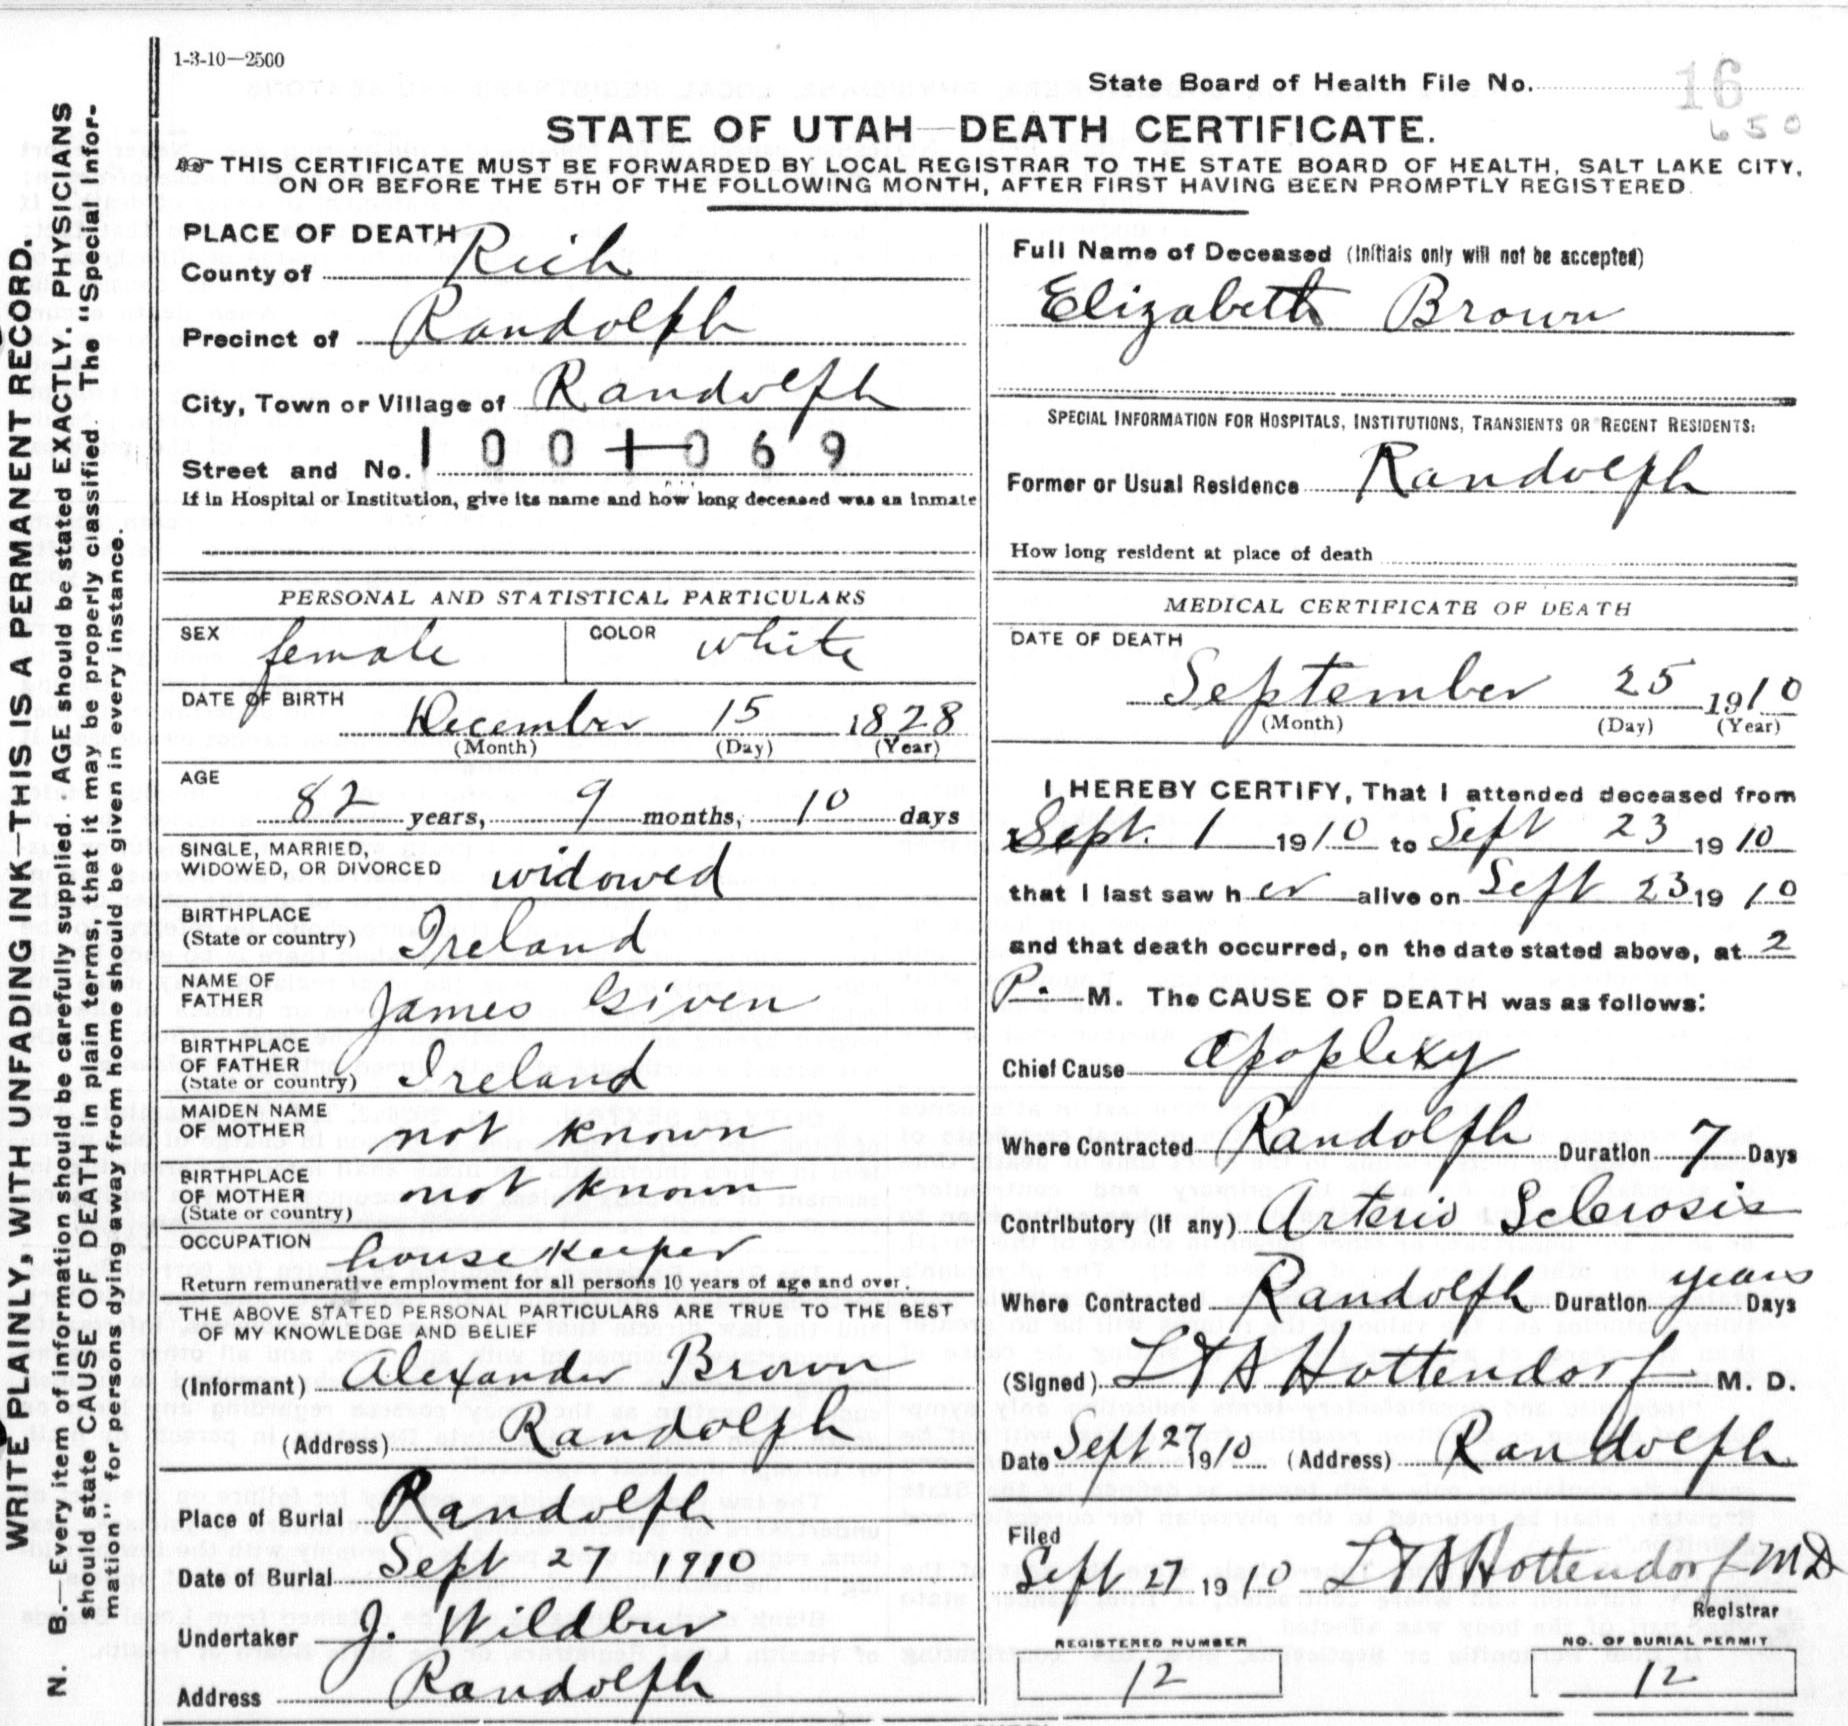 1-3-10—2500
State Board of Health File No. 16
650
STATE OF UTAH—DEATH CERTIFICATE.
THIS CERTIFICATE MUST BE FORWARDED BY LOCAL REGISTRAR TO THE STATE BOARD OF HEALTH, SALT LAKE CITY,
ON OR BEFORE THE 5TH OF THE FOLLOWING MONTH, AFTER FIRST HAVING BEEN PROMPTLY REGISTERED.
WRITE PLAINLY, WITH UNFADING INK—THIS IS A PERMANENT RECORD.
N. B.—Every item of information should be carefully supplied. AGE should be stated EXACTLY. PHYSICIANS
should state CAUSE OF DEATH in plain terms, that it may be properly classified. The "Special Infor-
mation" for persons dying away from home should be given in every instance.
PLACE OF DEATH
County of Rich
Precinct of Randolph
City, Town or Village of Randolph
Street and No. 100+069
If in Hospital or Institution, give its name and how long deceased was an inmate
PERSONAL AND STATISTICAL PARTICULARS
SEX female COLOR white
DATE OF BIRTH
December 15 1828
(Month) (Day) (Year)
AGE
82 years, 9 months, 10 days
SINGLE, MARRIED,
WIDOWED, OR DIVORCED widowed
BIRTHPLACE
(State or country) Ireland
NAME OF
FATHER James Given
BIRTHPLACE
OF FATHER
(State or country) Ireland
MAIDEN NAME
OF MOTHER not known
BIRTHPLACE
OF MOTHER not known
(State or country)
OCCUPATION house keeper
Return remunerative employment for all persons 10 years of age and over.
THE ABOVE STATED PERSONAL PARTICULARS ARE TRUE TO THE BEST
OF MY KNOWLEDGE AND BELIEF
(Informant) Alexander Brown
(Address) Randolph
Place of Burial Randolph
Date of Burial Sept 27 1910
Undertaker J. Wildbur
Address Randolph
Full Name of Deceased (Initials only will not be accepted)
Elizabeth Brown
SPECIAL INFORMATION FOR HOSPITALS, INSTITUTIONS, TRANSIENTS OR RECENT RESIDENTS:
Former or Usual Residence Randolph
How long resident at place of death
MEDICAL CERTIFICATE OF DEATH
DATE OF DEATH
September 25 1910
(Month) (Day) (Year)
I HEREBY CERTIFY, That I attended deceased from
Sept. 1 1910 to Sept 23 1910
that I last saw her alive on Sept 23 1910
and that death occurred, on the date stated above, at 2
P. M. The CAUSE OF DEATH was as follows:
Chief Cause Apoplexy
Where Contracted Randolph Duration 7 Days
Contributory (If any) Arterio Sclerosis
Where Contracted Randolph Duration years Days
(Signed) Hottendorf M. D.
Date Sept 27 1910 (Address) Randolph
Filed
Sept 27 1910 Hottendorf MD
Registrar
REGISTERED NUMBER
12
NO. OF BURIAL PERMIT
12